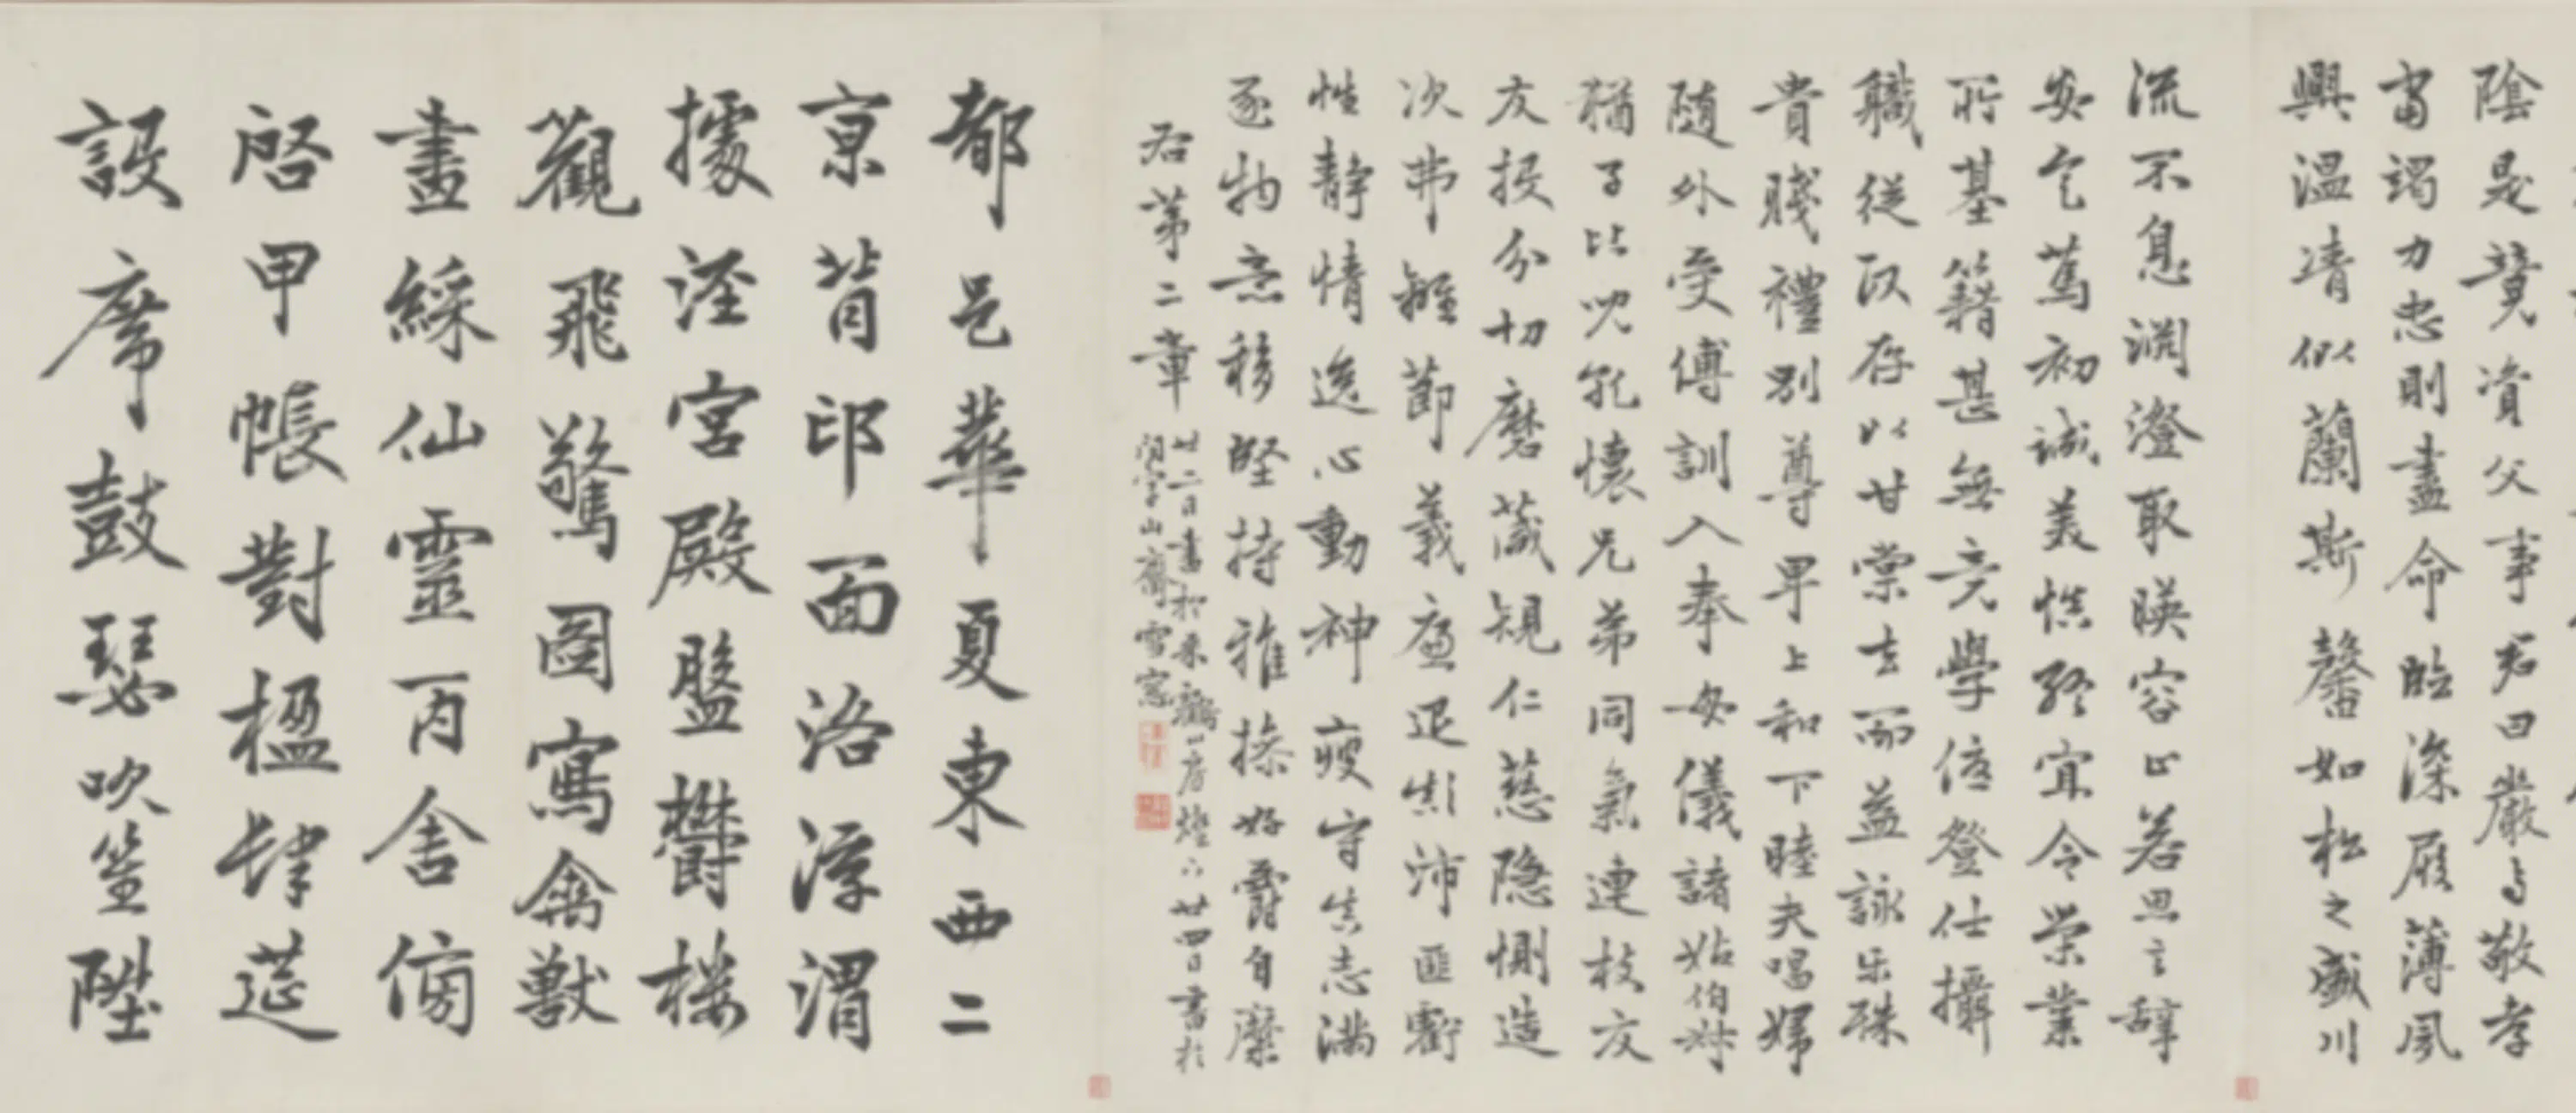 陰是競資父事君曰嚴与敬孝
當竭力忠則盡命臨深履薄夙
興温凊似蘭斯馨如松之盛川
流不息淵澄取暎容止若思言辭
安定篤初誠美慎終宜令榮業
所基籍甚無竟學優登仕攝
職從政存以甘棠去而益詠乐殊
貴賤禮別尊卑上和下睦夫唱婦
隨外受傅訓入奉母儀諸姑伯叔
猶子比兒孔懷兄弟同氣連枝交
友投分切磨箴規仁慈隱惻造
次弗離節義廉退顛沛匪虧
性静情逸心動神疲守真志滿
逐物意移堅持雅操好爵自縻
右第二章
廿二日書於来鶴
廿四日書於
閒字山齋雪窓
都邑華夏東西二
京背邙面洛浮渭
據涇宮殿盤欝楼
觀飛驚圖寫禽獸
畫綵仙靈丙舍傍
啓甲帳對楹肆莚
設席鼓瑟吹笙陞